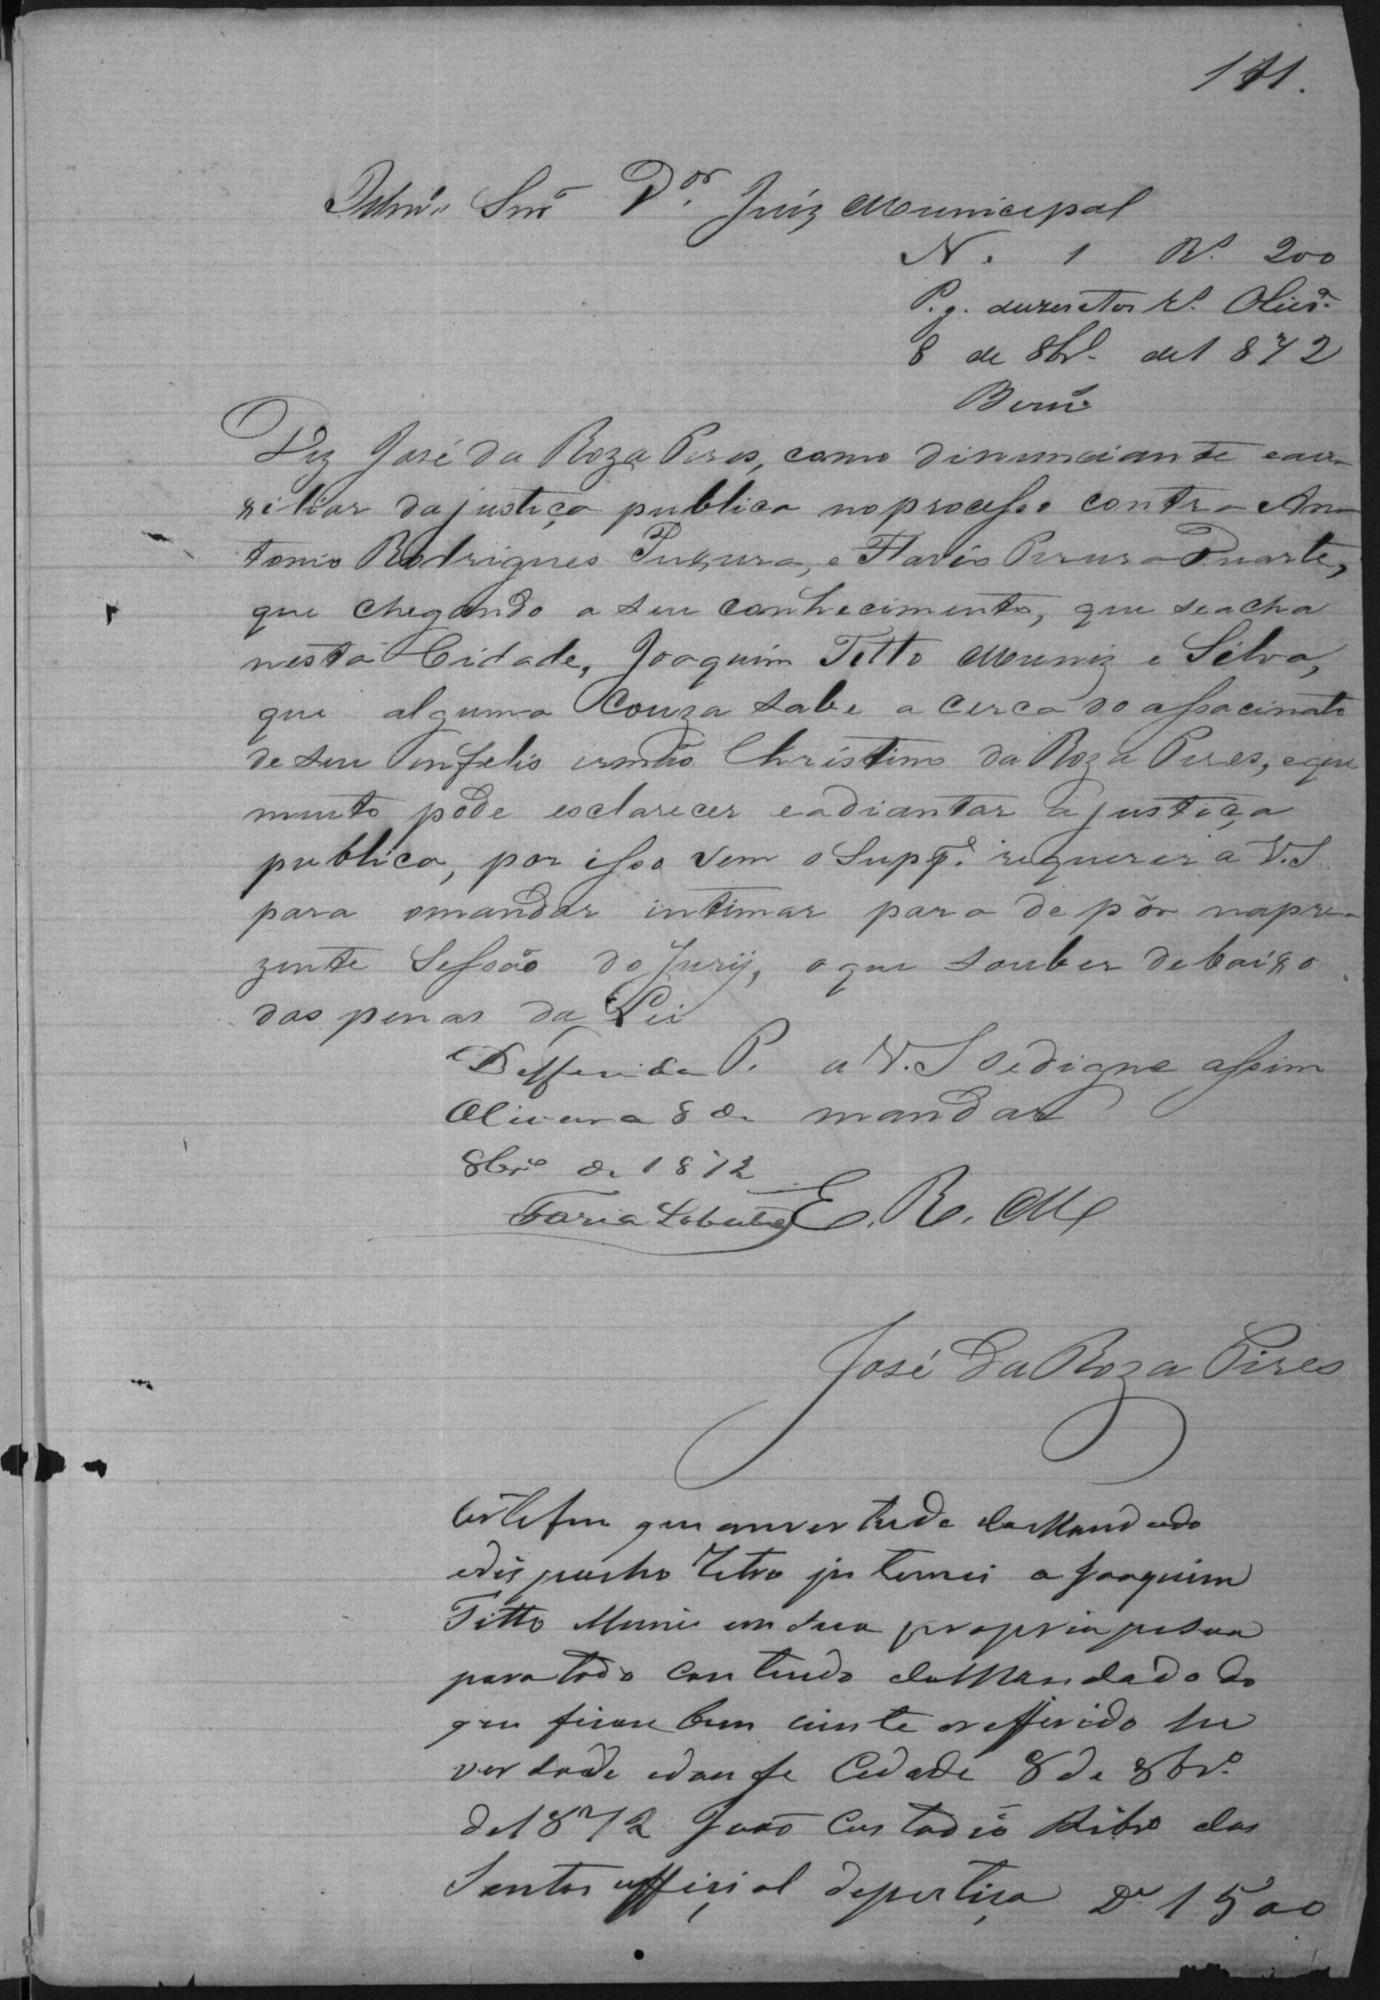 141.
Illmo. Snr. Dor. Juiz Municipal
N. 1 Rs. 200
P. g. duzentos rs. Olivra.
8 de 8br. de 1872
Diz José da Roza Pires, como dinunciante eau-
xiliar dajustiça publica noprocesso contra An-
tonio Rodrigues e Flavio Pereira Duarte,
que chegando a seu conhecimento, que seacha
nesta Cidade, Joaquim Titto Muniz e Silva,
que alguma couza sabe a cerca do assacinato
de seu infelis irmão Christino da Roza Pires, eque
muito pode esclarecer eadiantar ajustiça
publica, por isso vem o Suppe. requerer a V.S
para omandar intimar para depôr napre-
zente Sessão do Jury, oque souber debaixo
das penas da Lei
P. a V.S sedigne assim
mandar
Defferida
Oliveira 8 de
8bro de 1872
Faria Lobato
E. R. M
José da Roza Pires
Certefico que emvertude doMandado
edispacho retro intemei a Joaquim
Titto Muniz em sua propria pesoa
paratodo contiudo doMandado do
que ficou bem ciente orefferido he
verdade edoufe Cidade 8 de 8br.
de 1872 João Custodio Ribro dos
Santos official dejustiça Da 1500